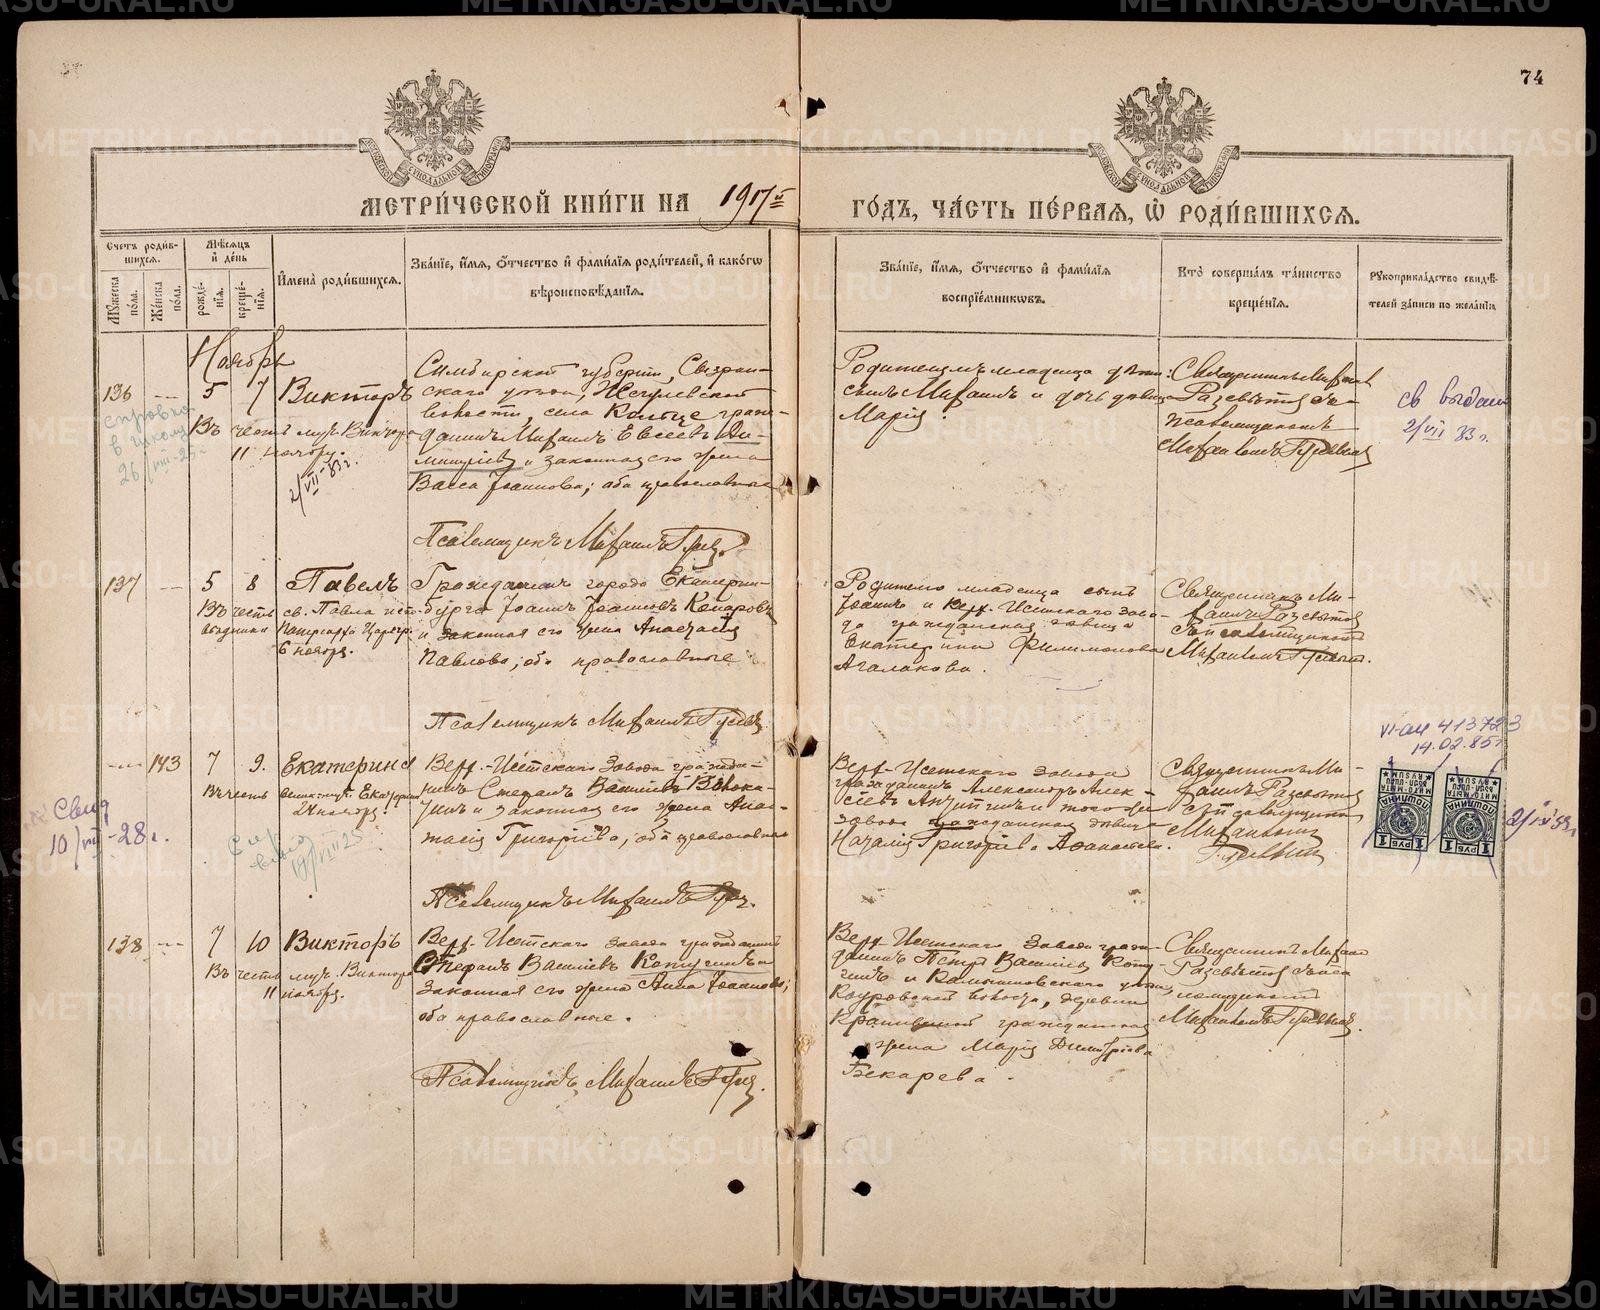 74
МЕТРИЧЕСКОЙ КНИГИ НА 1917й ГОДЪ, ЧАСТЬ ПЕРВАЯ, Ѡ РОДИВШИХСЯ.
Счетъ родив-
шихся.
Мужеска пола.
Женска пола.
Мѣсяцъ
и день
рожде-
нія.
креще-
нія.
Имена родившихся.
Званіе, имя, отчество и фамилія родителей, и какогѡ
вѣроисповѣданія.
Званіе, имя, отчество и фамилія
воспріемниковъ.
Кто совершалъ таинство
крещенія.
Рукоприкладство свидѣ-
телей записи по желанію
Ноябрь
136 5 7 Викторъ
Въ честь муч. Виктора
11 ноября.
2/VII 83 г.
справка
в школу
26/VIII-25 г.
Симбирской губерніи, Сызран-
скаго уѣзда,
волости, села граж-
данинъ Михаилъ Евсеевъ Ди-
митріевъ и законная его жена
Васса Іоаннова; оба православные
Псаломщикъ Михаилъ Гусевъ.
Родителемъ младенца дѣти:
сынъ Михаилъ и дочь дѣвица
Марія.
Священникъ Михаилъ
Разсвѣтовъ съ
псаломщикомъ
Михаиломъ Гусевымъ
св выдано
2/VII 83 г.
137 5 8 Павелъ
Въ честь св. Павла исп-
вѣдника Патріарха Царегр.
6 ноября.
Гражданинъ города Екатерин-
бурга Іоаннъ Іоанновъ Комаровъ
и законная его жена Анастасія
Павлова; оба православные
Псаломщикъ Михаилъ Гусевъ
Родителя младенца сынъ
Іоаннъ и Верх-Исетскаго заво-
да гражданская дѣвица
Екатерина Филимонова
Агалакова.
Священникъ Ми-
хаилъ Разсвѣтовъ
съ псаломщикомъ
Михаиломъ Гусевым.
143 7 9. Екатерина
Въ честь великомуч. Екатерины
24 ноября.
Свид
10/VIII-28 г.
19/VIII 25
Верх.-Исетскаго завода гражда-
нинъ Стефанъ Васильевъ
и законная его жена Анас-
тасія Григоріева; оба православные
Псаломщикъ Михаилъ Гусевъ.
Верх-Исетскаго завода
гражданинъ Александръ Алек-
сѣевъ и того-же
завода гражданская дѣвица
Наталія Григоріева Аѳанасьева.
Священникъ Ми-
хаилъ Разсвѣтовъ
съ псаломщикомъ
Михаиломъ
Гусевымъ
VI-АИ 413723
14.02.85г
ПОШЛИНА
1 РУБ 1
ПОШЛИНА
1 РУБ 1
138 7 10 Викторъ
Въ честь муч. Виктора
11 ноября.
Верх-Исетскаго завода гражданинъ
Стефанъ Васильевъ Копугинъ и
законная его жена Анна Іоаннова;
оба православные.
Псаломщикъ Михаилъ Гусевъ.
Верх-Исетскаго завода граж-
данинъ Петръ Васильевъ Копу-
гинъ и Камышловскаго уѣзда,
волости, деревни
гражданская
жена Марія Димитріева
Бекарева.
Священникъ Михаилъ
Разсвѣтовъ съ пса-
ломщикомъ
Михаиломъ Гусевымъ.
METRIKI.GASO-URAL.RU